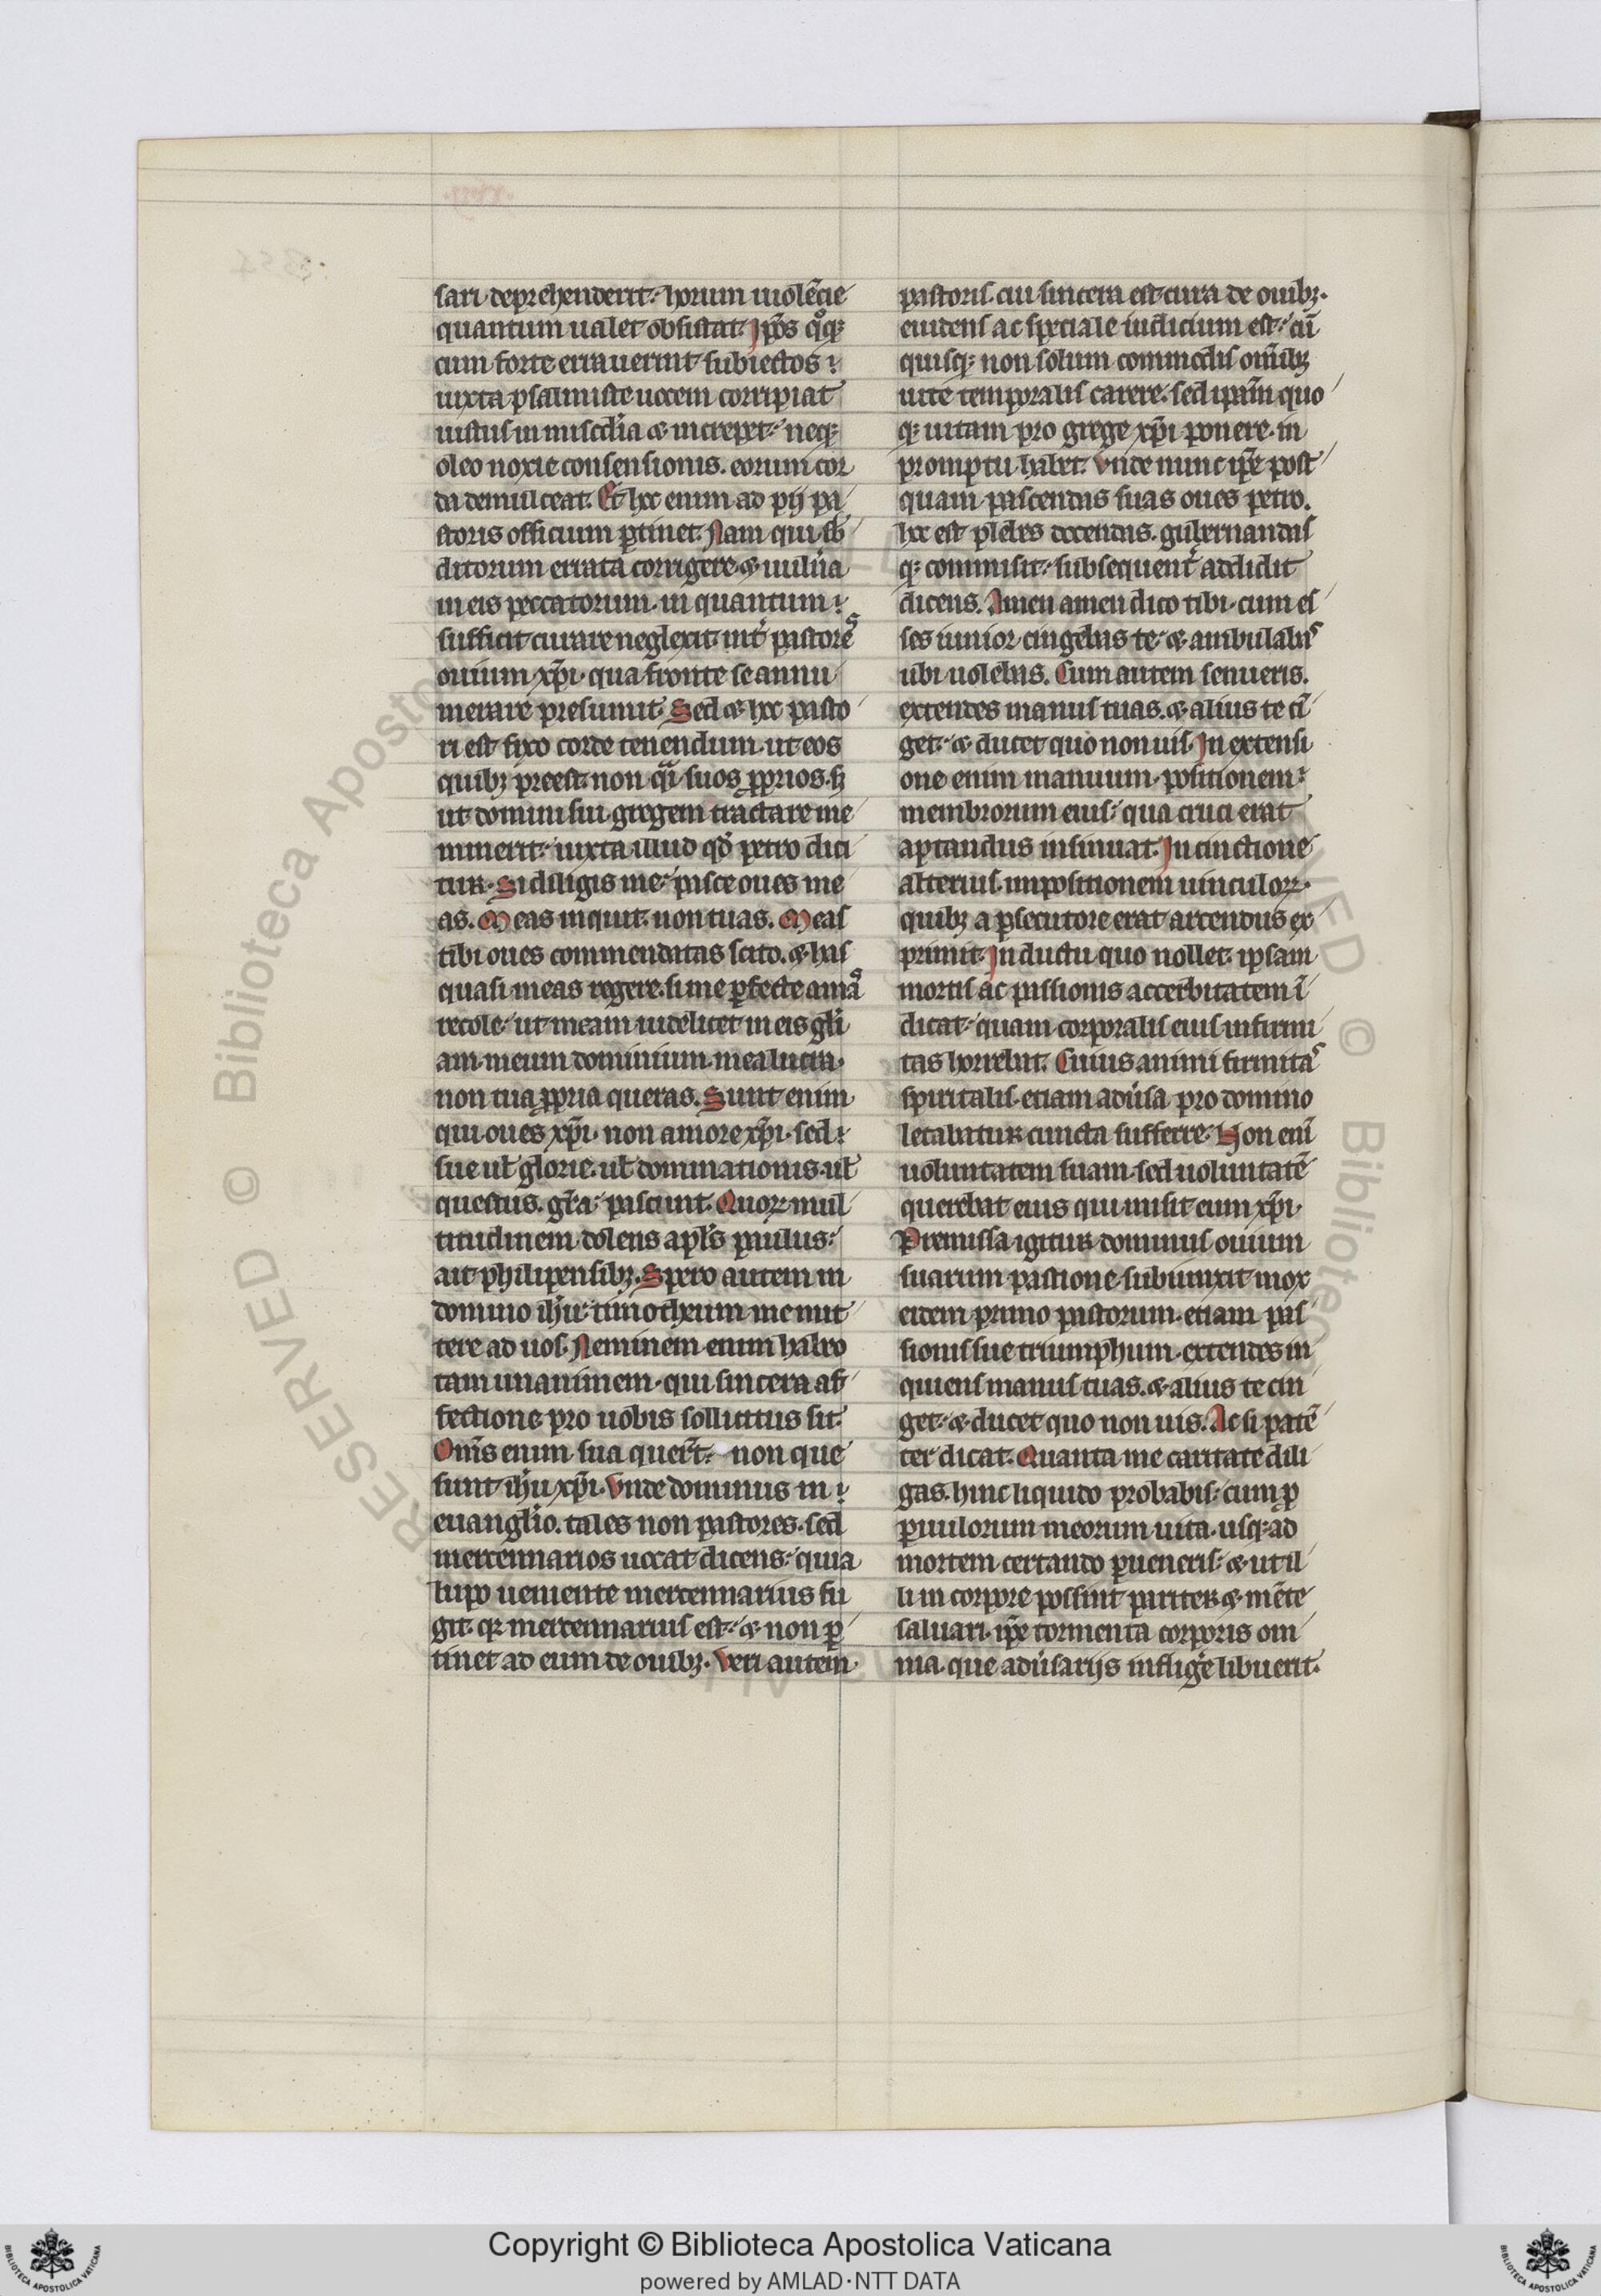 sari deprehenderit. horum uiolẽcie
quantum ualet obsistat. Ip̃os qͦq;
cum forte errauerint subiectos
iuxta psalmiste uocem corripiat
iustus in misc̃dia ⁊ increpet. neq;
oleo noxie consensionis. eorum cor
da demulceat. Et hoc enim ad pij pa
storis officium ꝑtinet. Nam qui sb̾
ditorum errata corrigere ⁊ uuln̾a
in eis peccatorum. in quantum
sufficit curare neglexit. int̾ pastores
ouium xp̃i. qua fronte se annu
merare presumit. Sed ⁊ hoc pasto
ri est fixo corde tenendum. ut eos
quibꝫ preest. non qᷓi suos ꝓprios. sꝫ
ut domini sui gregem tractare me
minerit. iuxta illud qđ petro dici
tur. Si diligis me. pasce oues me
as. Meas inquit. non tuas. Meas
tibi oues commendatas scito. ⁊ has
quasi meas regere. si me ꝑfecte amas
recole. ut meam uidelicet in eis gl̃i
am. meum dominium. mea lucra.
non tua ꝓpria queras. Sunt enim
qui oues xp̃i. non amore xp̃i. sed
sue ul̃ glorie. ul̃ dominationis. ul̃
questus. gr̃a pascunt. Quoꝝ mul
titudinem dolens apl̃s paulus.
ait philipensibꝫ. Spero autem in
domino ih̃u. timotheum me mit
tere ad uos. Neminem enim habeo
tam unanimem. qui sincera af
fectione pro uobis sollicitus sit.
Om̃s enim sua quer̃t. non que
sunt ih̃u xp̃i. Vnde dominus in
euanglĩo. tales non pastores. sed
mercennarios uocat dicens. quia
lupo ueniente mercennarius fu
git. qꝛ mercennarius est. ⁊ non ꝑ
tinet ad eum de ouibꝫ. Veri autem
pastoris. cui sincera est cura de ouibꝫ.
euidens ac speciale iudicium est. cũ
quisq; non solum commodis om̃ibꝫ
uite temporalis carere. sed ipam̃ quo
q; uitam pro grege xp̃i ponere. in
promptu habet. Vnde nunc ip̃e post
quam pascendas suas oues petro.
hoc est plebes docendas. gubernandas
q; commisit. subsequent̾ addidit
dicens. Amen amen dico tibi. cum es
ses iunior cingebas te. ⁊ ambulabas
ubi uolebas. Cum autem senueris.
extendes manus tuas. ⁊ alius te cĩ
get. ⁊ ducet quo non uis. In extensi
one enim manuum. positionem
membrorum eius. qua cruci erat
aptandus insinuat. In cinctione
alterius. impositionem uinculoꝝ.
quibꝫ a ꝑsecutore erat artendus ex
primit. In ductu quo nollet. ipsam
mortis ac passionis accerbitatem ĩ
dicat. quam corporalis eius infirmi
tas horrebat. Cuius animi firmitas
spiritalis. etiam adũsa pro domino
letabatur cuncta sufferre. Non enĩ
uoluntatem suam. sed uoluntatẽ
querebat eius qui misit eum xp̃i.
Premissa igitur dominus ouium
suarum pastione. subiunxit mox
eidem primo pastorum. etiam pas
sionis sue triumphum. extendes in
quiens manus tuas. ⁊ alius te cin
get. ⁊ ducet quo non uis. Ac si patẽ
ter dicat. Quanta me caritate dili
gas. hinc liquido probabis. cum ꝓ
ꝑuulorum meorum uita. usq; ad
mortem certando ꝑueneris. ⁊ ut il
li in corpore possint pariter ⁊ mẽte
saluari. ip̃e tormenta corporis om
nia. que adũsarijs inflig̾e libuerit.
Copyright © Biblioteca Apostolica Vaticana
powered by AMLAD·NTT DATA